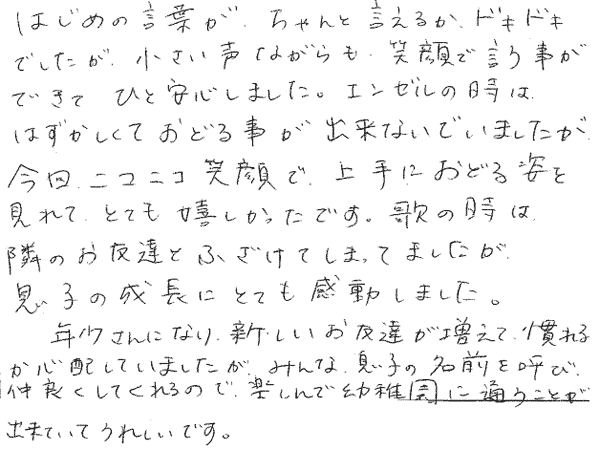 はじめの言葉が、ちゃんと言えるか、ドキドキ
でしたが、小さい声ながらも、笑顔で言う事が
できて ひと安心しました。エンゼルの時は、
はずかしくておどる事が出来ないでいましたが、
今回、ニコニコ笑顔で、上手におどる姿を
見れて、とても嬉しかったです。歌の時は、
隣のお友達とふざけてしまってましたが、
息子の成長にとても感動しました。
年少さんになり、新しいお友達が増えて、慣れる
か心配していましたが、みんな、息子の名前を呼び、
仲良くしてくれるので、楽しんで幼稚園に通うことが
出来ていてうれしいです。